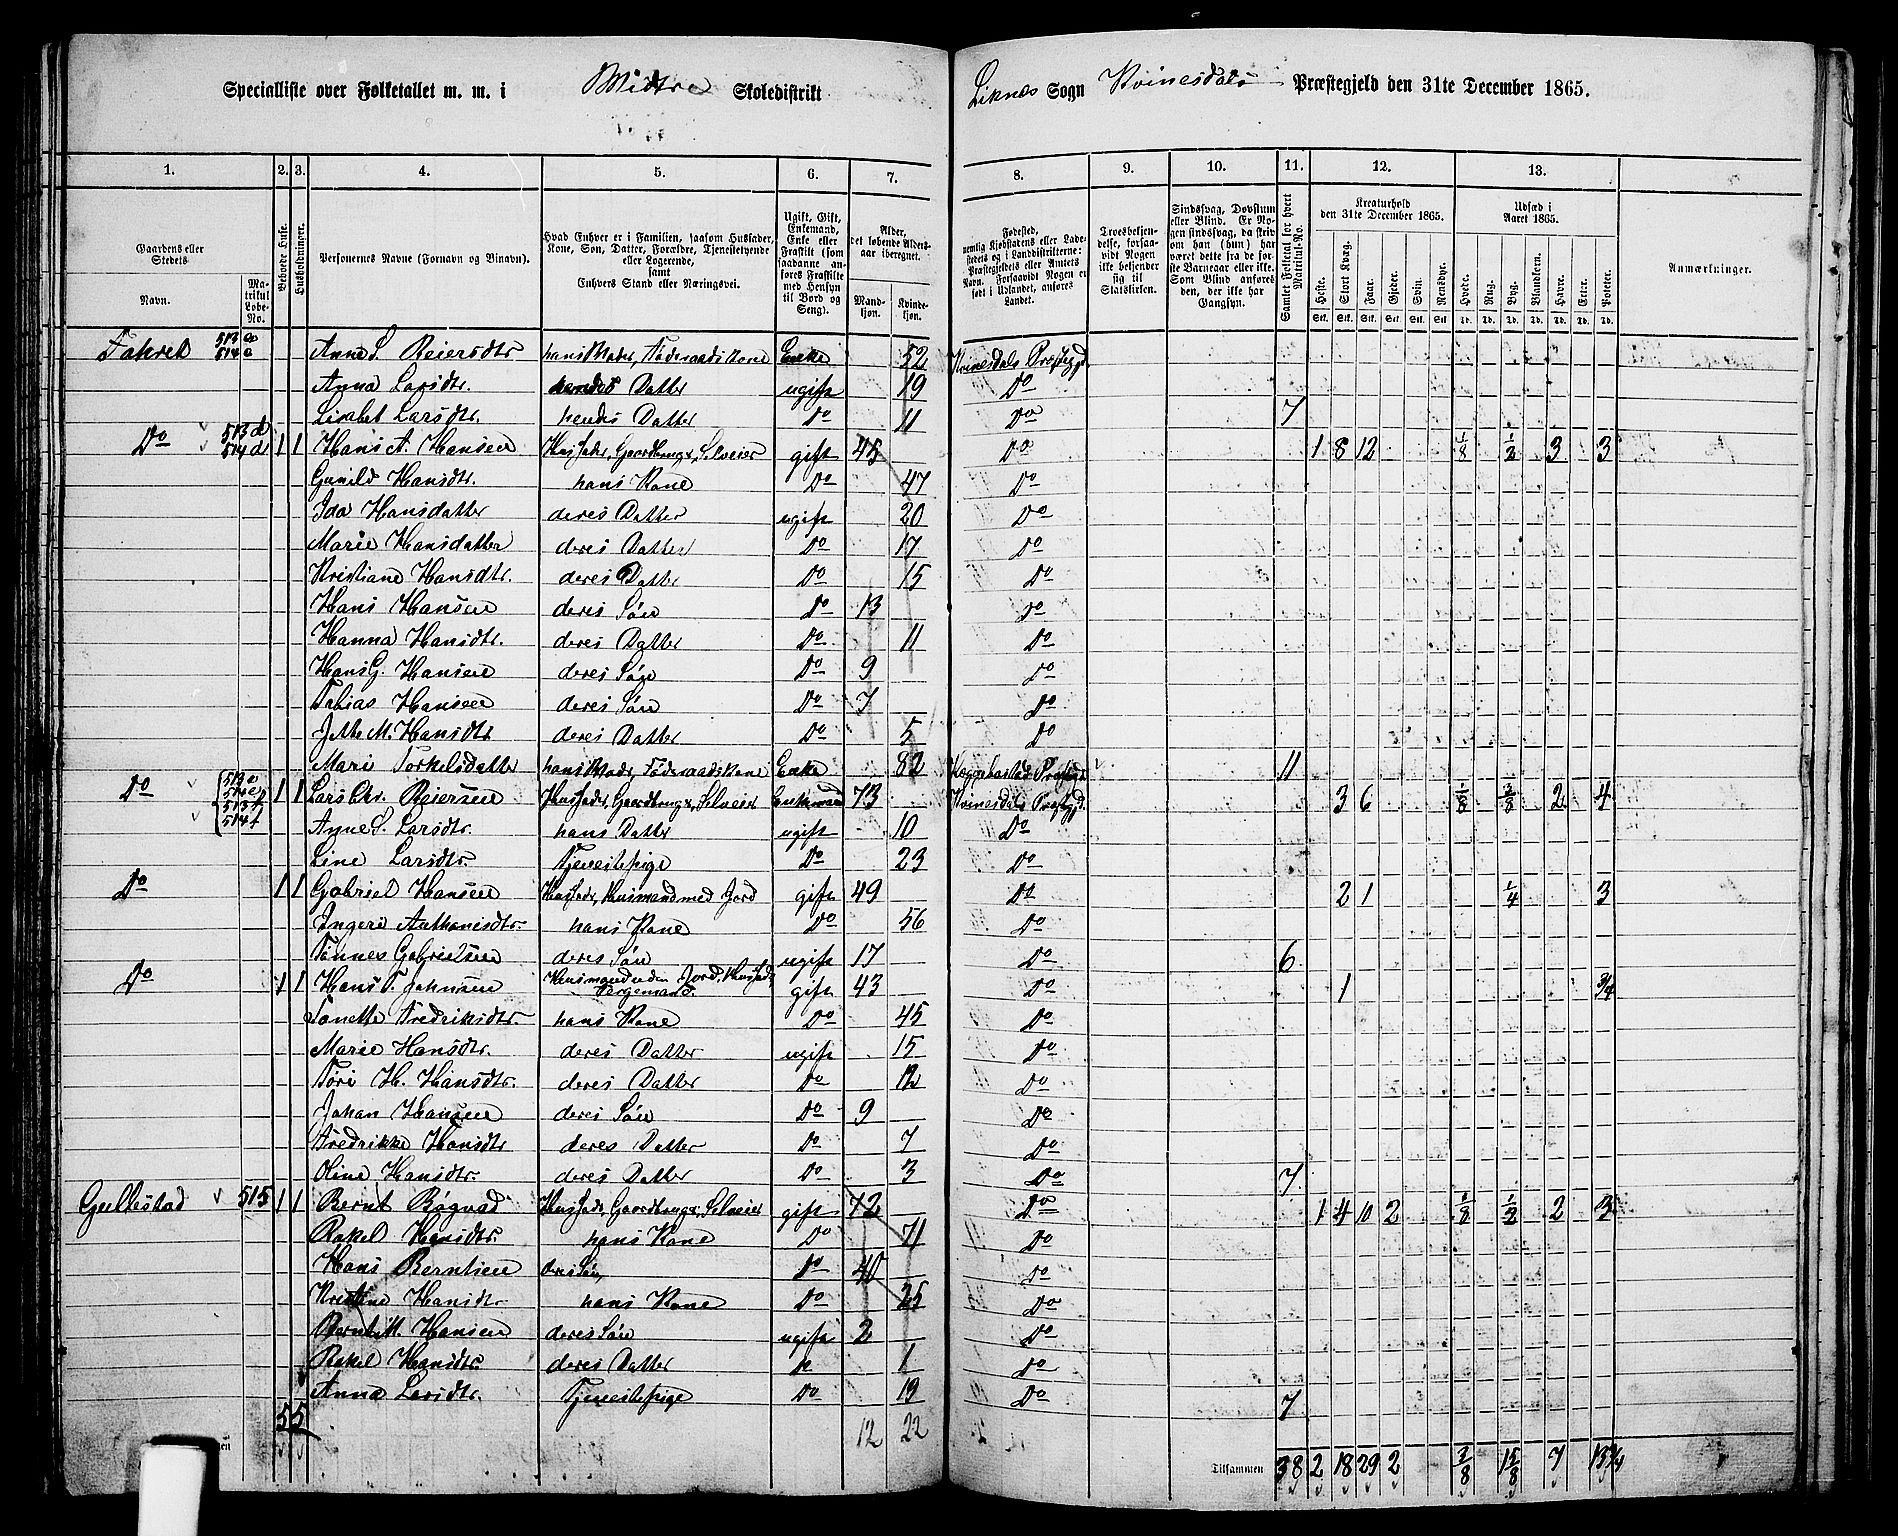 Specialliste over Folketallet m. m. i Midtre Skoledistrikt Liknæs Sogn Kvinesdals Præstegjeld den 31te December 1865.
1. 2. 3. 4. 5. 6. 7. 8. 9. 10. 11. 12. 13.
Gaardens eller Stedets
Navn.
Matrikul Løbe-No.
Beboede Huse.
Husholdninger.
Personernes Navne (Fornavn og Binavn).
Hvad Enhver er i Familien, saasom Husfader, Kone, Søn, Datter, Forældre, Tjenestetyende eller Logerende, samt Enhvers Stand eller Næringsvei.
Ugift, Gift, Enkemand, Enke eller Fraskilt (som saadanne anføres Fraskilte med Hensyn til Bord og Seng).
Alder, det løbende Alders-aar iberegnet.
Mandkjøn. Kvindekjøn.
Fødested, nemlig Kjøbstadens eller Ladestedets og i Landdistrikterne: Præstegjeldets eller Amtets Navn. Forsaavidt Nogen er født i Udlandet, anføres Landet.
Troesbekjendelse, forsaavidt Nogen ikke bekjender sig til Statskirken.
Sindssvag, Døvstum eller Blind. Er Nogen sindssvag, da skrives om han (hun) har været dette fra de første Barneaar eller ikke. Som Blind anføres den, der ikke har Gangsyn.
Samlet Folketal for hvert Matrikul-No.
Kreaturhold den 31te December 1865.
Heste. Stort Kvæg. Faar. Gjeder. Svin. Rensdyr.
Udsæd i Aaret 1865.
Hvede. Rug. Byg. Blandkorn. Havre. Erter. Poteter.
Anmærkninger.
Fahret 513 514 Anne S. Reiersdtr hans Moder, Føderaadskone Enke 52 Kvinesdals Præstegjd
Anna Larsdtr. hendes Datter ugift 19 Do
Lisabet Larsdtr. hendes Datter Do 11 Do 7
Do 513 d 514 d 1 1 Hans A. Hansen Husfader, Gaardbruger, Selveier gift 45 Do 1 8 12 1/8 1/2 3 3
Gunild Hansdtr. hans Kone Do 47 Do
Ida Hansdatter deres Datter ugift 20 Do
Marie Hansdatter deres Datter Do 17 Do
Kristiane Hansdtr. deres Datter Do 15 Do
Hans Hansen deres Søn Do 13 Do
Hanna Hansdtr. deres Datter Do 11 Do
Hans G. Hansen deres Søn Do 9 Do
Tobias Hansen deres Søn Do 7 Do
Jette M. Hansdtr deres Datter Do 5 Do
Mari Torkelsdatter hans Moder, Føderaadskone Enke 82 11
Do 513 514 513 f 514 f 1 1 Lars Chr. Reiersen Husfader, Gaardbruger, Selveier Enkemand 73 Kvinesdals Præstegjd. 3 6 1/8 3/8 2 4
Anne S. Larsdtr. hans Datter ugift 10 Do
Line Larsdtr. Tjenestepige Do 23 Do
Do 1 1 Gabriel Hansen Husfader, Husmand med Jord gift 49 Do 2 1 1/4 3
Ingeri Anthonisdtr. hans Kone Do 56 Do
Tønnes Gabrielsen deres Søn ugift 17 Do 6
Do 1 1 Hans T. Johnsen Husmand uden Jord, Husfader gift 43 Do 1 3/4
Tonette Fredriksdtr. hans Kone Do 45 Do
Marie Hansdtr. deres Datter ugift 15 Do
Tøri H. Hansdtr. deres Datter Do 12 Do
Johan Hansen deres Søn Do 9 Do
Fredrikke Hansdtr deres Datter Do 7 Do
Oline Hansdtr. deres Datter Do 3 Do 7
Gullestad 515 1 1 Bernt Røgvad Husfader, Gaardbruger, Selveier gift 72 Do 1 4 10 2 1/8 1/2 2 3
Rakel Hansdtr hans Kone Do 71 Do
Hans Berntsen deres Søn, Do 40 Do
Kristine Hansdtr hans Kone Do 25 Do
Bernt M. Hansen deres Søn ugift 2 Do
Rakel Hansdtr. deres Datter Do 1 Do
Anna Larsdtr. Tjenestepige Do 19 Do 7
5 5 12 22
Tilsammen 38 2 18 29 2 3/8 1 5/8 7 13 3/4